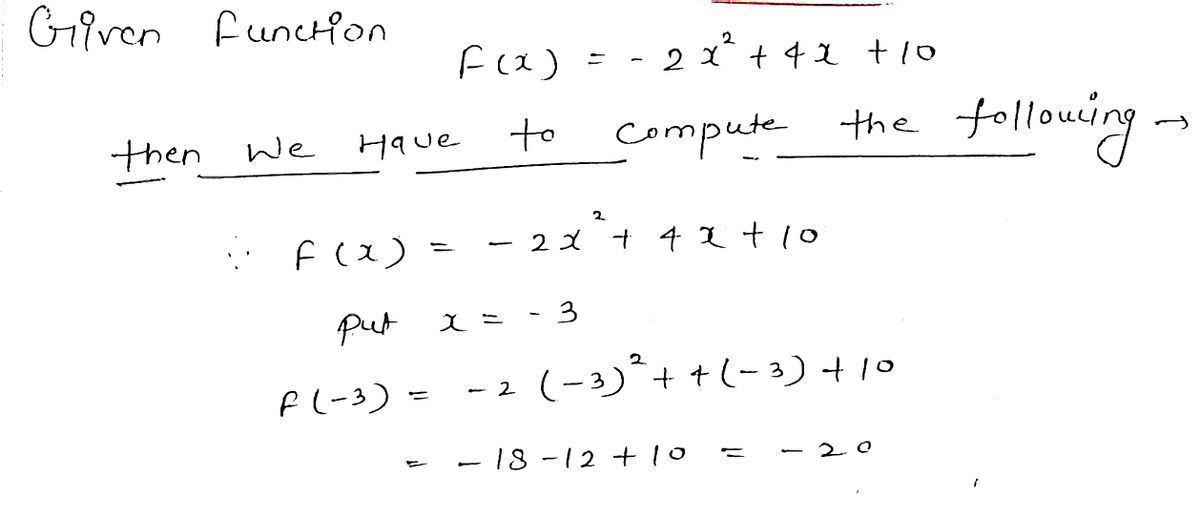 Given function
f(x) = - 2x² + 4x + 10
then We Have to compute the following →
∵ f(x) = - 2x² + 4x + 10
put x = - 3
f(-3) = - 2 (-3)² + 4(-3) + 10
= - 18 - 12 + 10 = - 20